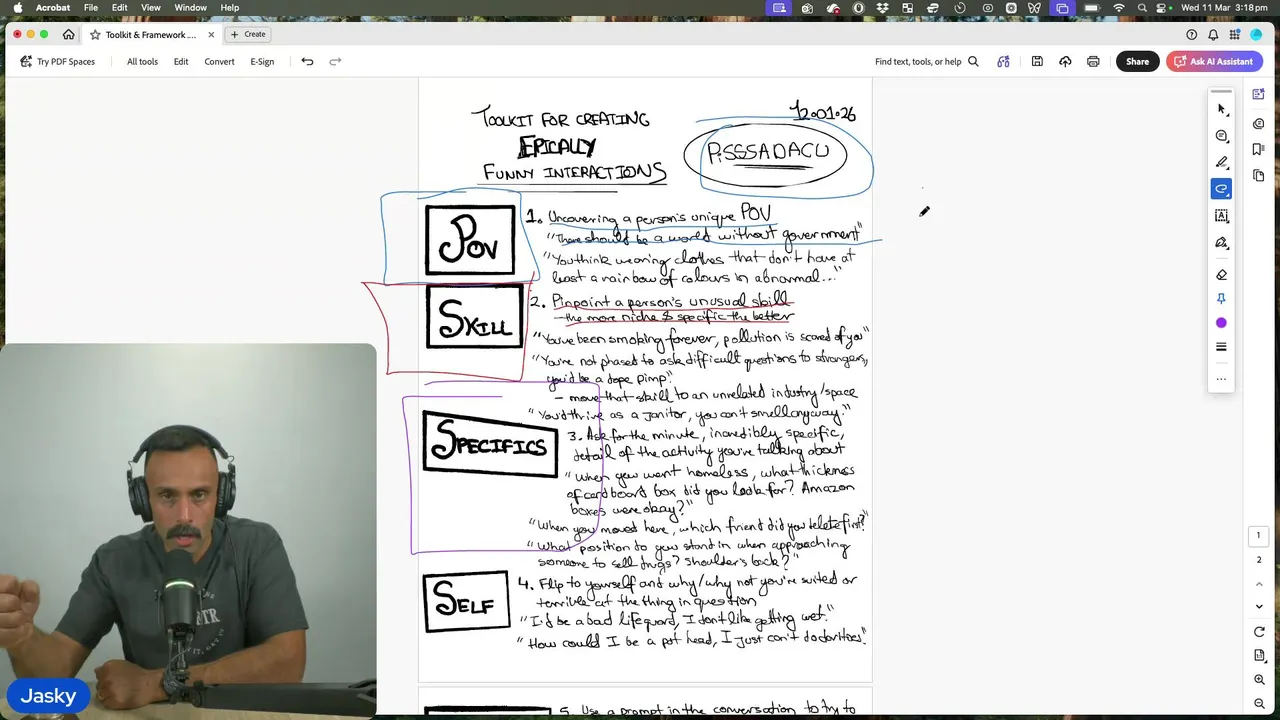 Acrobat File Edit View Window Help
Wed 11 Mar 3:18pm
Toolkit & Framework ....
Create
Try PDF Spaces All tools Edit Convert E-Sign
Find text, tools, or help
Share
Ask AI Assistant
TOOLKIT FOR CREATING
EPICALLY
FUNNY INTERACTIONS
12.01.26
P.SSSADACU
POV
1. Uncovering a person's unique POV
"There should be a world without government"
"You think wearing clothes that don't have at
least a rainbow of colours in abnormal..."
SKILL
2. Pinpoint a person's unusual skill
- the more niche & specific the better
"You've been smoking forever, pollution is scared of you"
"You're not phased to ask difficult questions to strangers,
you'd be a dope pimp."
- move that skill to an unrelated industry/space
"You'd thrive as a janitor, you can't smell anyway."
SPECIFICS
3. Ask for the minute, incredibly specific,
detail of the activity you're talking about
"When you went homeless, what thickness
of cardboard box did you look for? Amazon
boxes were okay?"
"When you moved here, which friend did you delete first?"
"What position do you stand in when approaching
someone to sell drugs? Shoulders back?"
SELF
4. Flip to yourself and why/why not you're suited or
terrible at the thing in question
"I'd be a bad lifeguard, I don't like getting wet."
"How could I be a pot head, I just can't do dorites."
5. Use a prompt in the conversation to try to
1
2
Jasky